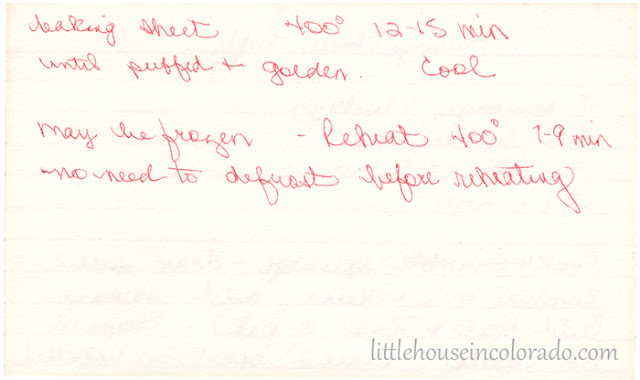 baking sheet 400° 12-15 min
until puffed + golden. Cool
may be frozen - Reheat 400° 7-9 min
-no need to defrost before reheating
littlehouseincolorado.com